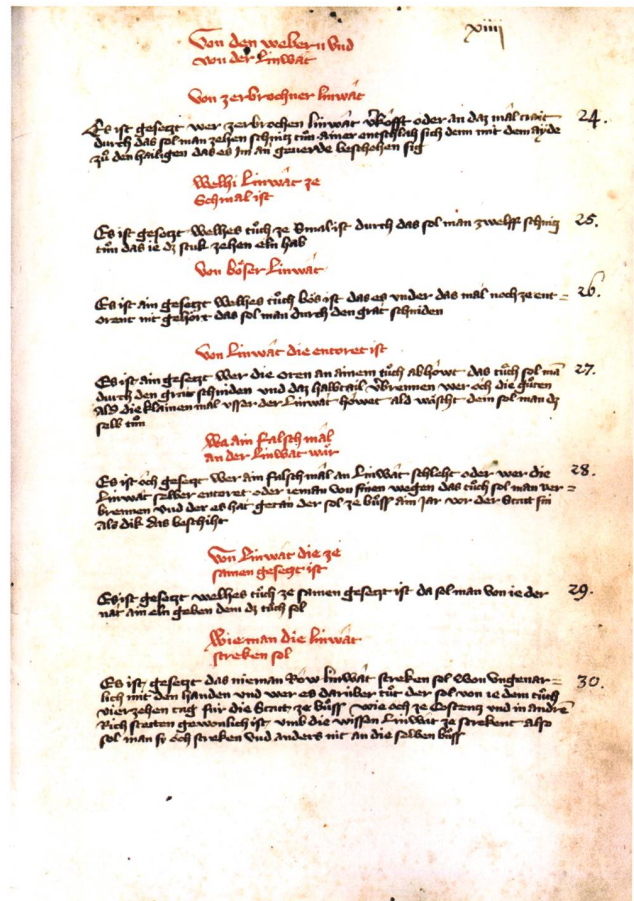 xiiij
Von den webern vnd
von der Linwât
Von zerbrochner linwât
Es ist gesetzt wer zerbrochen linwât vͤkofft oder an daz mâl trait 24.
durch das sol man zehen schnitz tůn ainer entschlah sich denn mit dem ayde
zů den hailigen das es Im ân geuerde beschehen sig
Welhi Linwât ze
Schmal ist
Es ist gesetzt Welhes tůch ze Smal ist durch das sol man zwelff schnitz 25.
tůn das ie dz stuk zehen eln hab
Von bôser Linwât
Es ist ain gesetzt Welhes tůch bôs ist das es vnder das mâl noch ze ent= 26.
orent nit gehôrt das sol man durch den grat schniden
Von Linwât die entoret ist
Es ist ain gesetzt Wer die oren an ainem tůch abhôwt das tůch sol mā 27.
durch den grat schniden vnd daz halbtail vbrennen wer och die gůten
Als die klainen mal vsser der Linwat hôwet ald wäscht dem sol man dz
selb tůn
Wa ain falsch mâl
an der Linwât wär
Es ist ôch gesetzt Wer ain falsch mâl an Linwât schleht oder wer die 28.
Linwat selber entoret oder ieman von sinen wegen das tůch sol man ver=
brennen vnd der es hat getan der sol ze bůss ain Jar vor der Statt sin
Als dik das beschiht
Von Linwât die ze
samen gesetzt ist
Es ist gesetzt welhes tůch ze samen gesetzt ist da sol man von ie der 29.
nât ain eln geben dem dz tůch sol
Wie man die linwât
streken sol
Es ist gesetzt das nieman Row linwât streken sol Won vngenar= 30.
lich mit den handen vnd wer es darüber tůt der sol von ie dem tůch
vierzehen tag für die Statt ze bůss Wie och ze Costentz vnd in andrē
Rich stetten gewonlich ist vmb die wissen Linwat ze strekent also
sol man sy ôch streken Vnd anders nit an die selben bůss